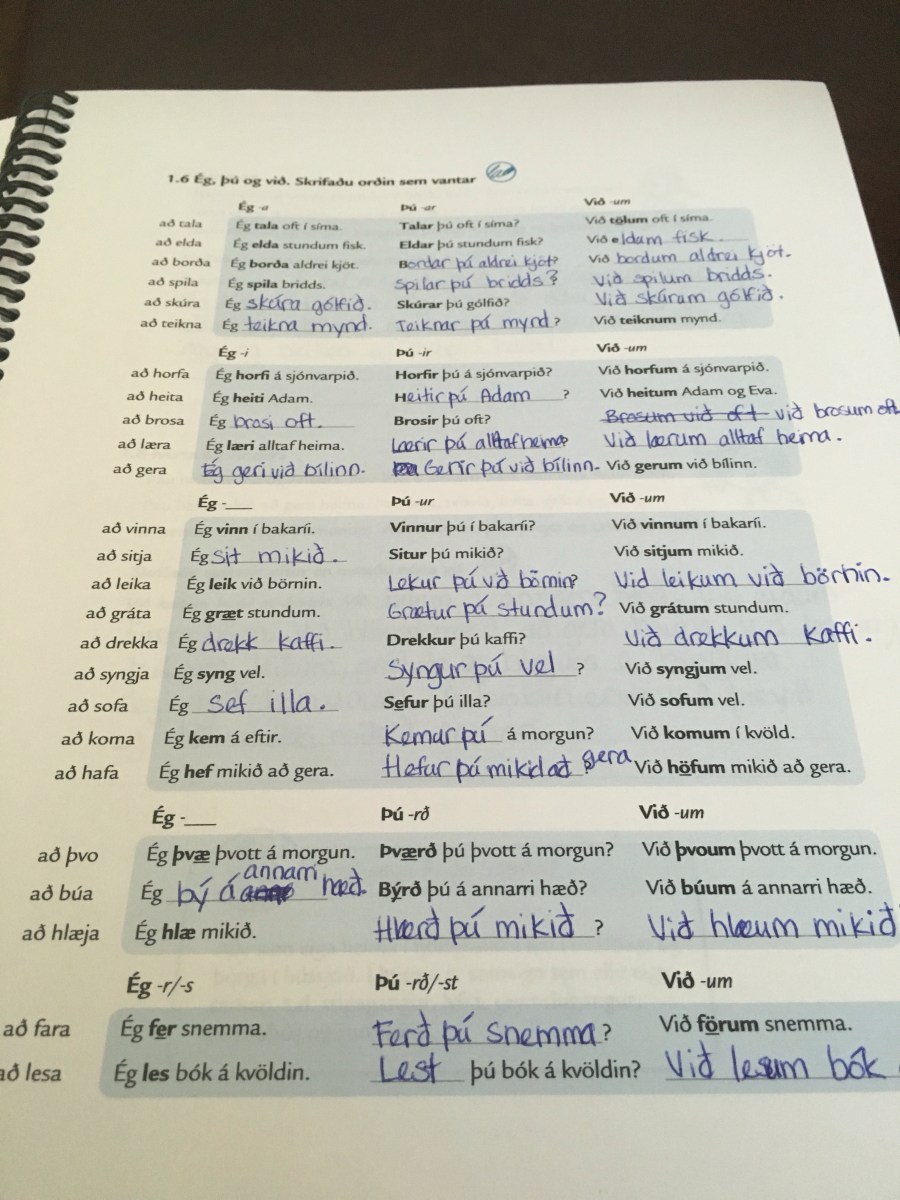 1.6 Ég, þú og við. Skrifaðu orðin sem vantar
Ég -a Þú -ar Við -um
að tala Ég tala oft í síma. Talar þú oft í síma? Við tölum oft í síma.
að elda Ég elda stundum fisk. Eldar þú stundum fisk? Við eldam fisk.
að borða Ég borða aldrei kjöt. Bordar pá aldrei kjöt? Við bordum aldrei kjöt.
að spila Ég spila bridds. Spilar pú bridds? Við spilum bridds.
að skúra Ég skúra gólfið. Skúrar þú gólfið? Við skúram gólfið.
að teikna Ég teikna mynd. Teiknar pá mynd? Við teiknum mynd.
Ég -i Þú -ir Við -um
að horfa Ég horfi á sjónvarpið. Horfir þú á sjónvarpið? Við horfum á sjónvarpið.
að heita Ég heiti Adam. Heitir pú Adam ? Við heitum Adam og Eva.
að brosa Ég brosi oft. Brosir þú oft? Brosum við oft við brosum oft
að læra Ég læri alltaf heima. Lærir pú alltaf heima? Við lærum alltaf heima.
að gera Ég geri við bílinn. Gerir pú við bílinn. Við gerum við bílinn.
Ég -___ Þú -ur Við -um
að vinna Ég vinn í bakaríi. Vinnur þú í bakaríi? Við vinnum í bakaríi.
að sitja Ég sit mikið. Situr þú mikið? Við sitjum mikið.
að leika Ég leik við börnin. Lekur pú við börnin? Vid leikum við börnin.
að gráta Ég græt stundum. Grætur pú stundum? Við grátum stundum.
að drekka Ég drekk kaffi. Drekkur þú kaffi? Við drekkum kaffi.
að syngja Ég syng vel. Syngur pú vel ? Við syngjum vel.
að sofa Ég sef illa. Sefur þú illa? Við sofum vel.
að koma Ég kem á eftir. Kemur pú á morgun? Við komum í kvöld.
að hafa Ég hef mikið að gera. Hefur pú mikid að gera? Við höfum mikið að gera.
Ég -___ Þú -rð Við -um
að þvo Ég þvæ þvott á morgun. Þværð þú þvott á morgun? Við þvoum þvott á morgun.
að búa Ég bý á annarri hæð. Býrð þú á annarri hæð? Við búum á annarri hæð.
að hlæja Ég hlæ mikið. Hlærð pú mikið ? Við hlæum mikið
Ég -r/-s Þú -rð/-st Við -um
að fara Ég fer snemma. Ferð pú snemma? Við förum snemma.
að lesa Ég les bók á kvöldin. Lest þú bók á kvöldin? Við lesum bók